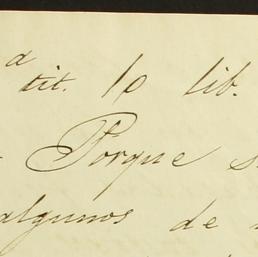 tit. 10 lib.
Porque
algunos de